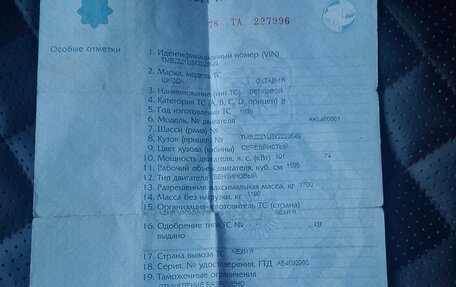 78 ТА 227996
Особые отметки
1. Идентификационный номер (VIN)
2. Марка, модель ТС
ШКОДА ОКТАВИЯ
3. Наименование (тип ТС) ЛЕГКОВОЙ
4. Категория ТС (А, В, С, D, прицеп) В
5. Год изготовления ТС 1999
6. Модель, № двигателя
7. Шасси (рама) №
8. Кузов (прицеп) №
9. Цвет кузова (кабины) СЕРЕБРИСТЫЙ
10. Мощность двигателя, л. с. (кВт) 101 74
11. Рабочий объем двигателя, куб. см 1595
12. Тип двигателя БЕНЗИНОВЫЙ
13. Разрешенная максимальная масса, кг 1700
14. Масса без нагрузки, кг 1190
15. Организация-изготовитель ТС (страна)
ЧЕХИЯ
16. Одобрение типа ТС № от
выдано
17. Страна вывоза ТС ЧЕХИЯ
18. Серия, № удостоверения, ГТД
19. Таможенные ограничения
ОТЧУЖДЕНИЕ РАЗРЕШЕНО